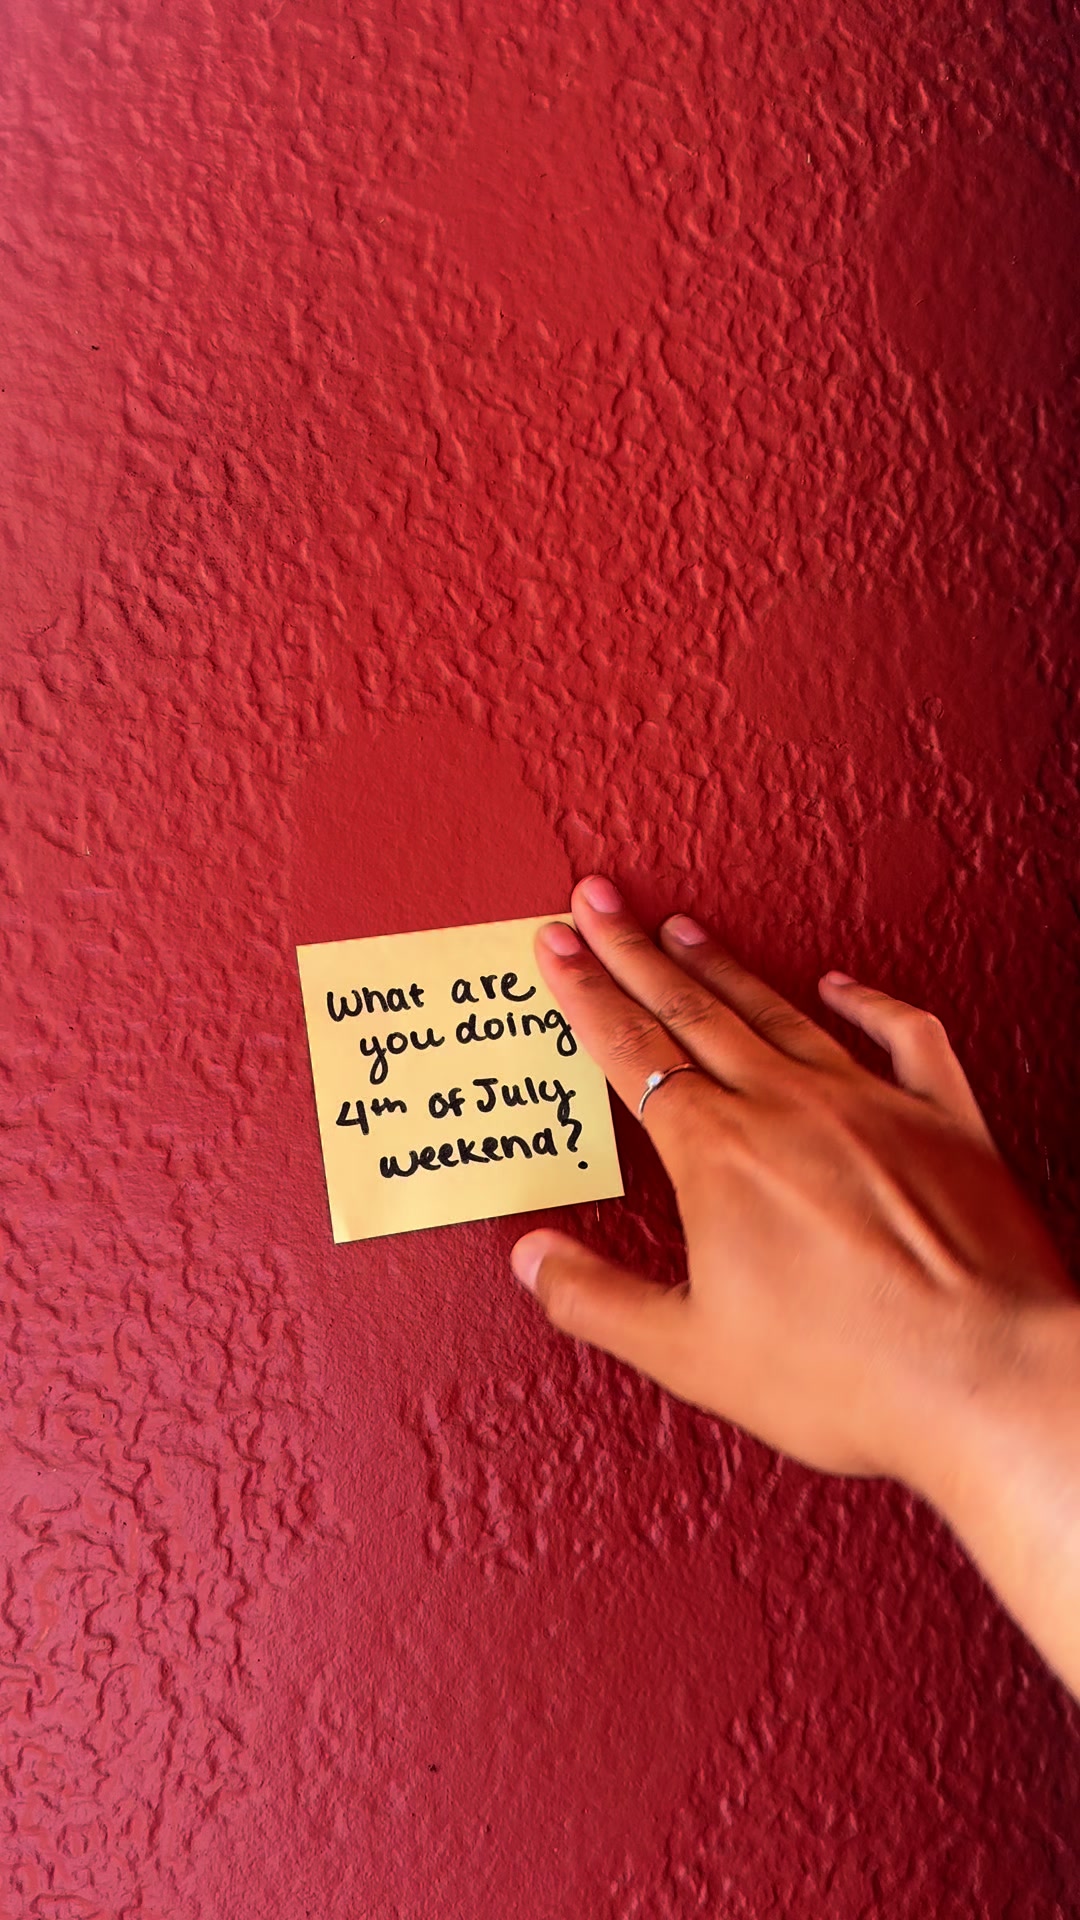 What are
you doing
4th of July
weekend?